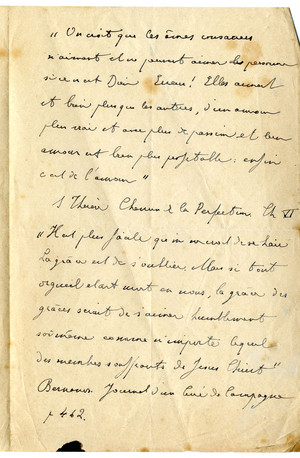 "On croit que ces âmes consacrées
n'aiment et ne peuvent aimer personne
si ce n'est Dieu. Erreur ! Elles aiment
et bien plus que les autres, d'un amour
plus vrai et avec plus de passion et leur
amour est bien plus profitable : enfin
c'est de l'amour"
S Thérèse Chemin de la Perfection Ch VI
"Il est plus facile que l'on croit de se haïr
La grâce est de s'oublier. Mais si tout
orgueil était mort en nous, la grâce des
grâces serait de s'aimer humblement
soi-même comme n'importe lequel
des membres souffrants de Jésus Christ"
Bernanos. Journal d'un Curé de Campagne
p 442.